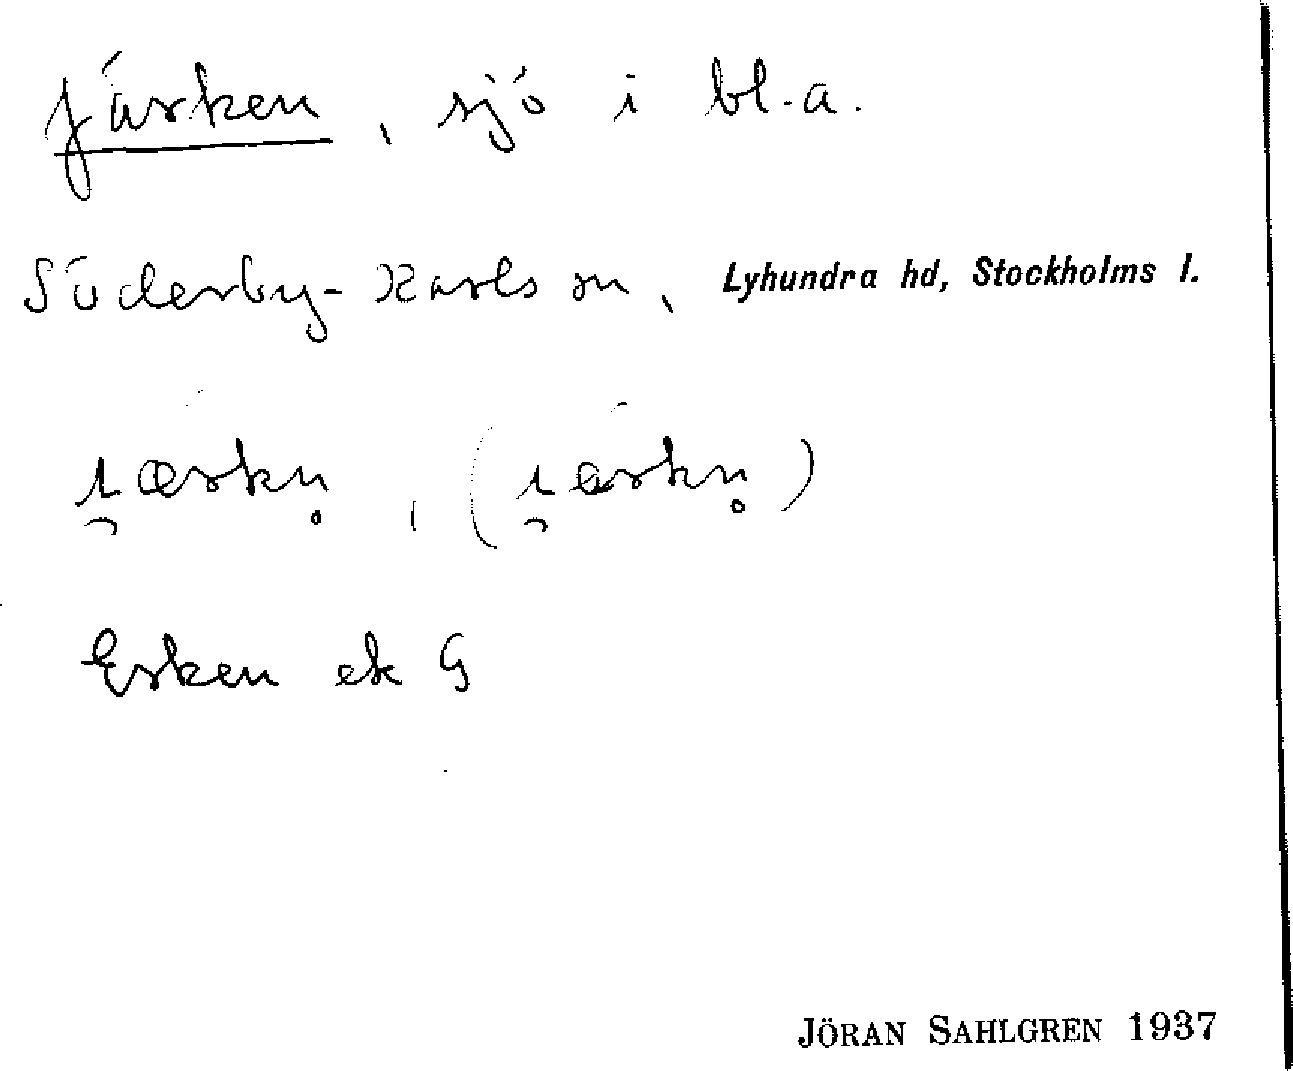 Järken, sjö i bl.a.
Söderby-Karls sn, Lyhundra hd, Stockholms l.
ı̯ærkn̥, (ı̯ärkn̥)
Erken ek G
JÖRAN SAHLGREN 1937